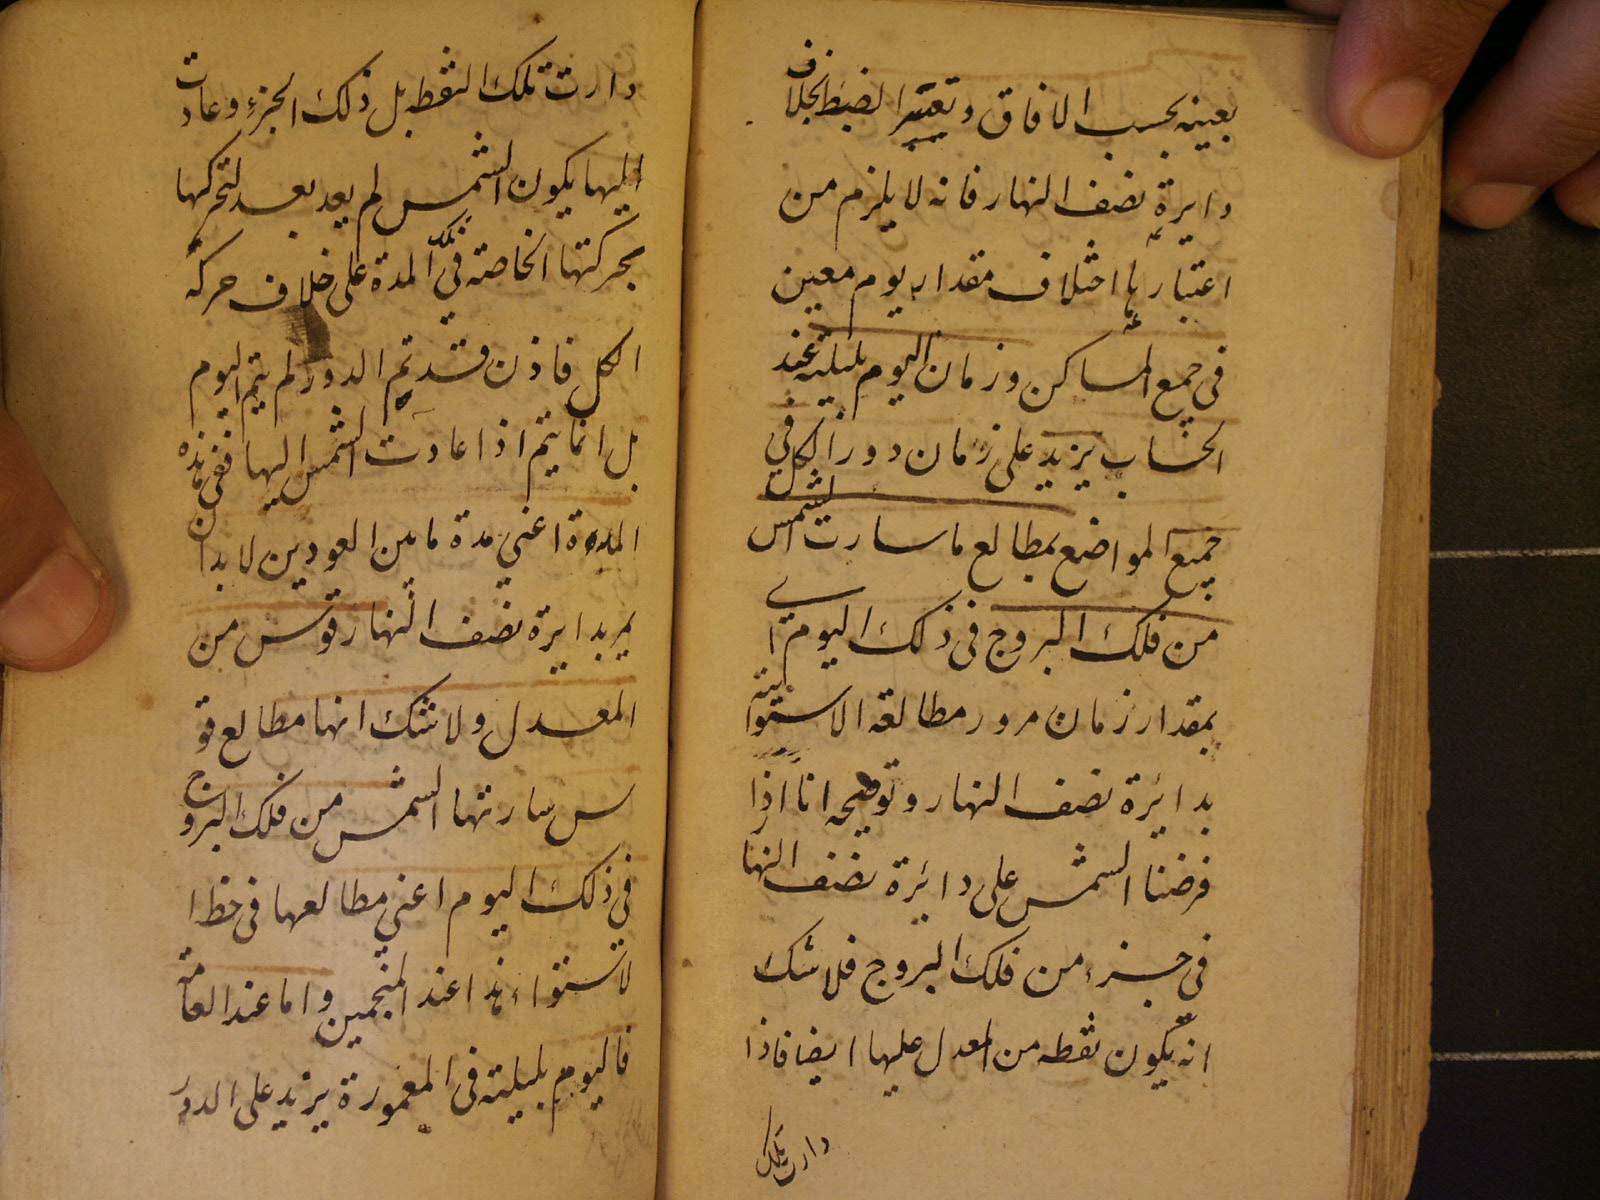 بعينه بحسب الافاق وتعسر الضبط بخلاف
دايرة نصف النهار فانه لا يلزم من
اعتبارها اختلاف مقدار يوم معين
في جميع المساكن وزمان اليوم بليلته عند
الحساب يزيد على زمان دور الكل في
جميع المواضع بمطالع ما سارت الشمس
من فلك البروج في ذلك اليوم اي
بمقدار زمان مرور مطالعه الاستوائية
بدائرة نصف النهار وتوضيحه انا اذا
فرضنا الشمس على دائرة نصف النها
في جزء من فلك البروج فلا شك
انه يكون نقطه من المعدل عليها ايضا فاذا
دارت تلك
دارت تلك النقطه بل ذلك الجزء وعادت
اليها يكون الشمس لم يعد بعد لتحركها
بحركتها الخاصة في تلك المدة على خلاف حركة
الكل فاذن قد تم الدور لم يتم اليوم
بل انما يتم اذا عادت الشمس اليها ففي هذه
المدة اعني مدة ما بين العودين لا بد ان
يمر بدايرة نصف النهار قوس من
المعدل ولا شك انها مطالع قو
س سارتها الشمس من فلك البروج
في ذلك اليوم اعني مطالعها في خط ا
لاستواء هذا عند المنجمين واما عند العامة
فاليوم بليلته في المعمورة يزيد على الدور